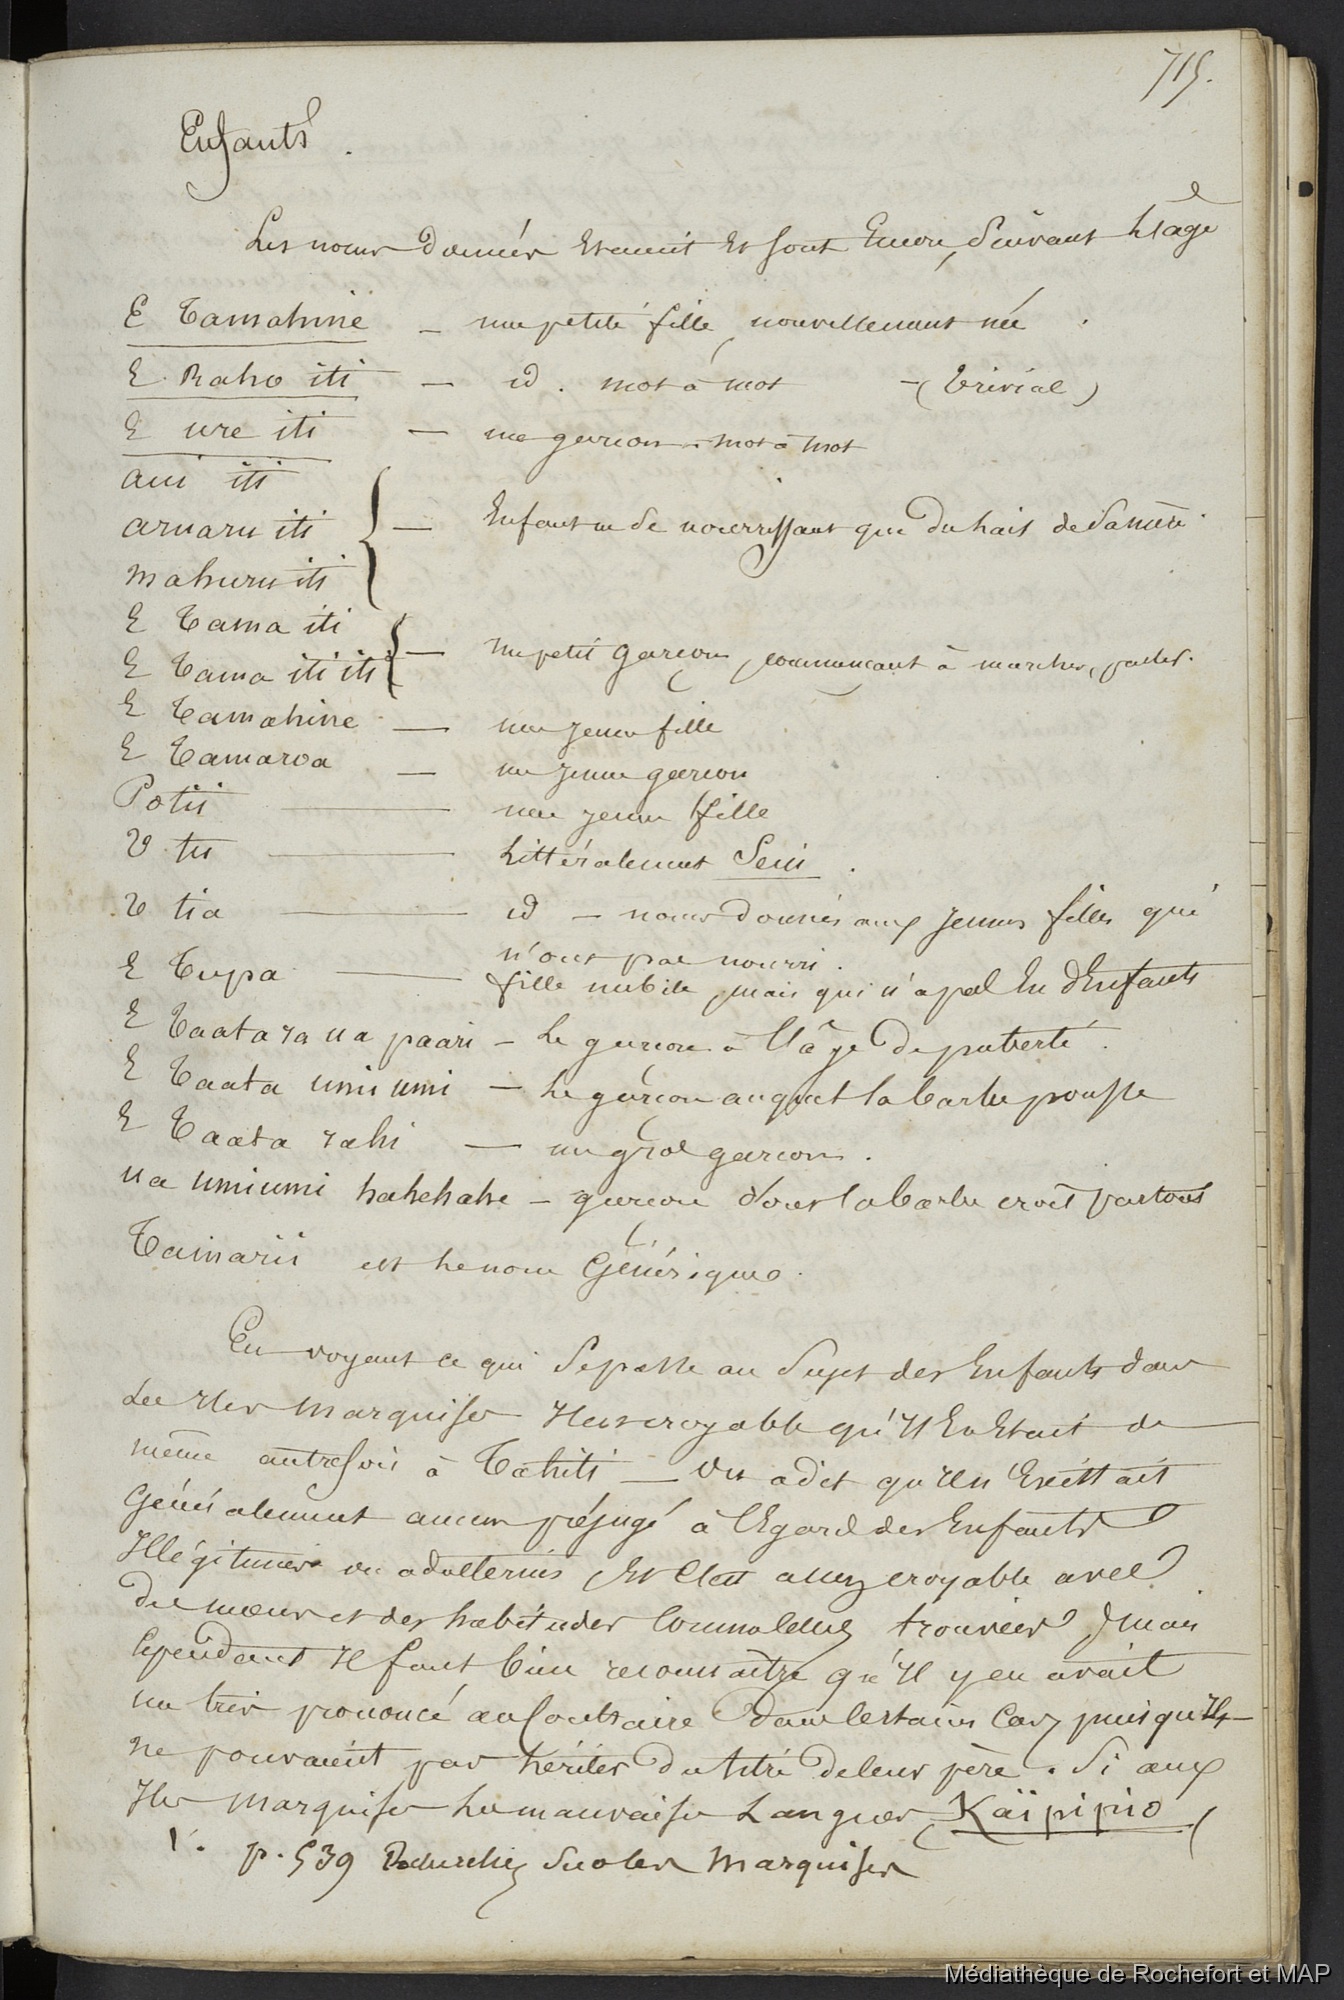 715.
Enfants.
Les noms donnés étaient et sont encore, suivant l'âge
E Tamahine — une petite fille, nouvellement née.
E Raho iti — id. mot à mot — (trivial)
E ure iti — un garçon. mot à mot
aiu iti
aruaru iti — Enfant ne se nourrissant que du lait de sa mère.
mahuru iti
E Tama iti
E Tama iti iti — un petit garçon, commençant à marcher, parler.
E Tamahine — une jeune fille
E Tamaroa — un jeune garçon
Potii — une jeune fille
U tu — Littéralement Sein.
U tia — id — noms donnés aux jeunes filles qui
n'ont pas nourri.
E Tupa — fille nubile, mais qui n'a pas eu d'Enfants
E Taata ra ua paari — le garçon à l'âge de puberté.
E Taata umi umi — le garçon auquel la barbe pousse
E Taata rahi — un gros garçon.
ua umiumi hahehahe — garçon dont la barbe croît partout
Tamarii est le nom Générique.
En voyant ce qui se passe au sujet des Enfants dans
les Iles Marquises Il est croyable qu'Il en Etait de
même autrefois à Tahiti — On a dit qu'Il n'Existait
Généralement aucun préjugé à l'Egard des Enfants
Illégitimes ou adultérins, Et c'Est assez croyable avec
des mœurs et des habitudes comme celles trouvées, mais
cependant Il faut bien reconnaître qu'Il y en avait
un très prononcé au contraire dans certains cas, puisqu'Ils
ne pouvaient pas hériter du titre de leur père. Si aux
Iles Marquises les mauvaises Langues, Kaïpipio (
V. p. 539 Recherches sur les Marquises
Médiathèque de Rochefort et MAP